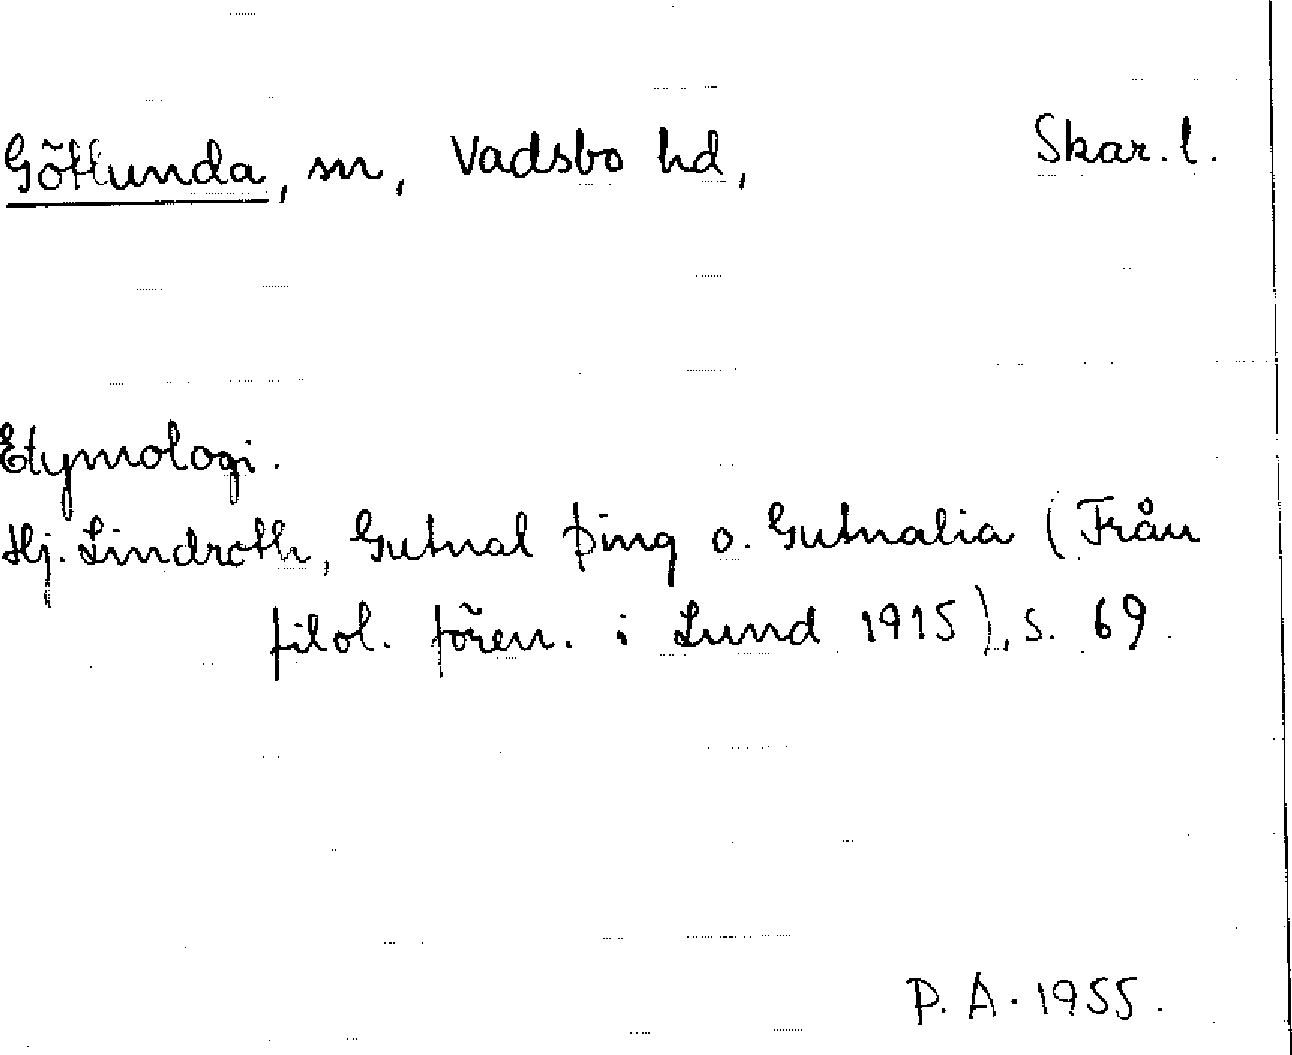 Götlunda, sn, Vadsbo hd, Skar. l.
Etymologi.
Hj. Lindroth, Gutnal þing o. Gutnalia (Från
filol. fören. i Lund 1915), s. 69.
P. A. 1955.